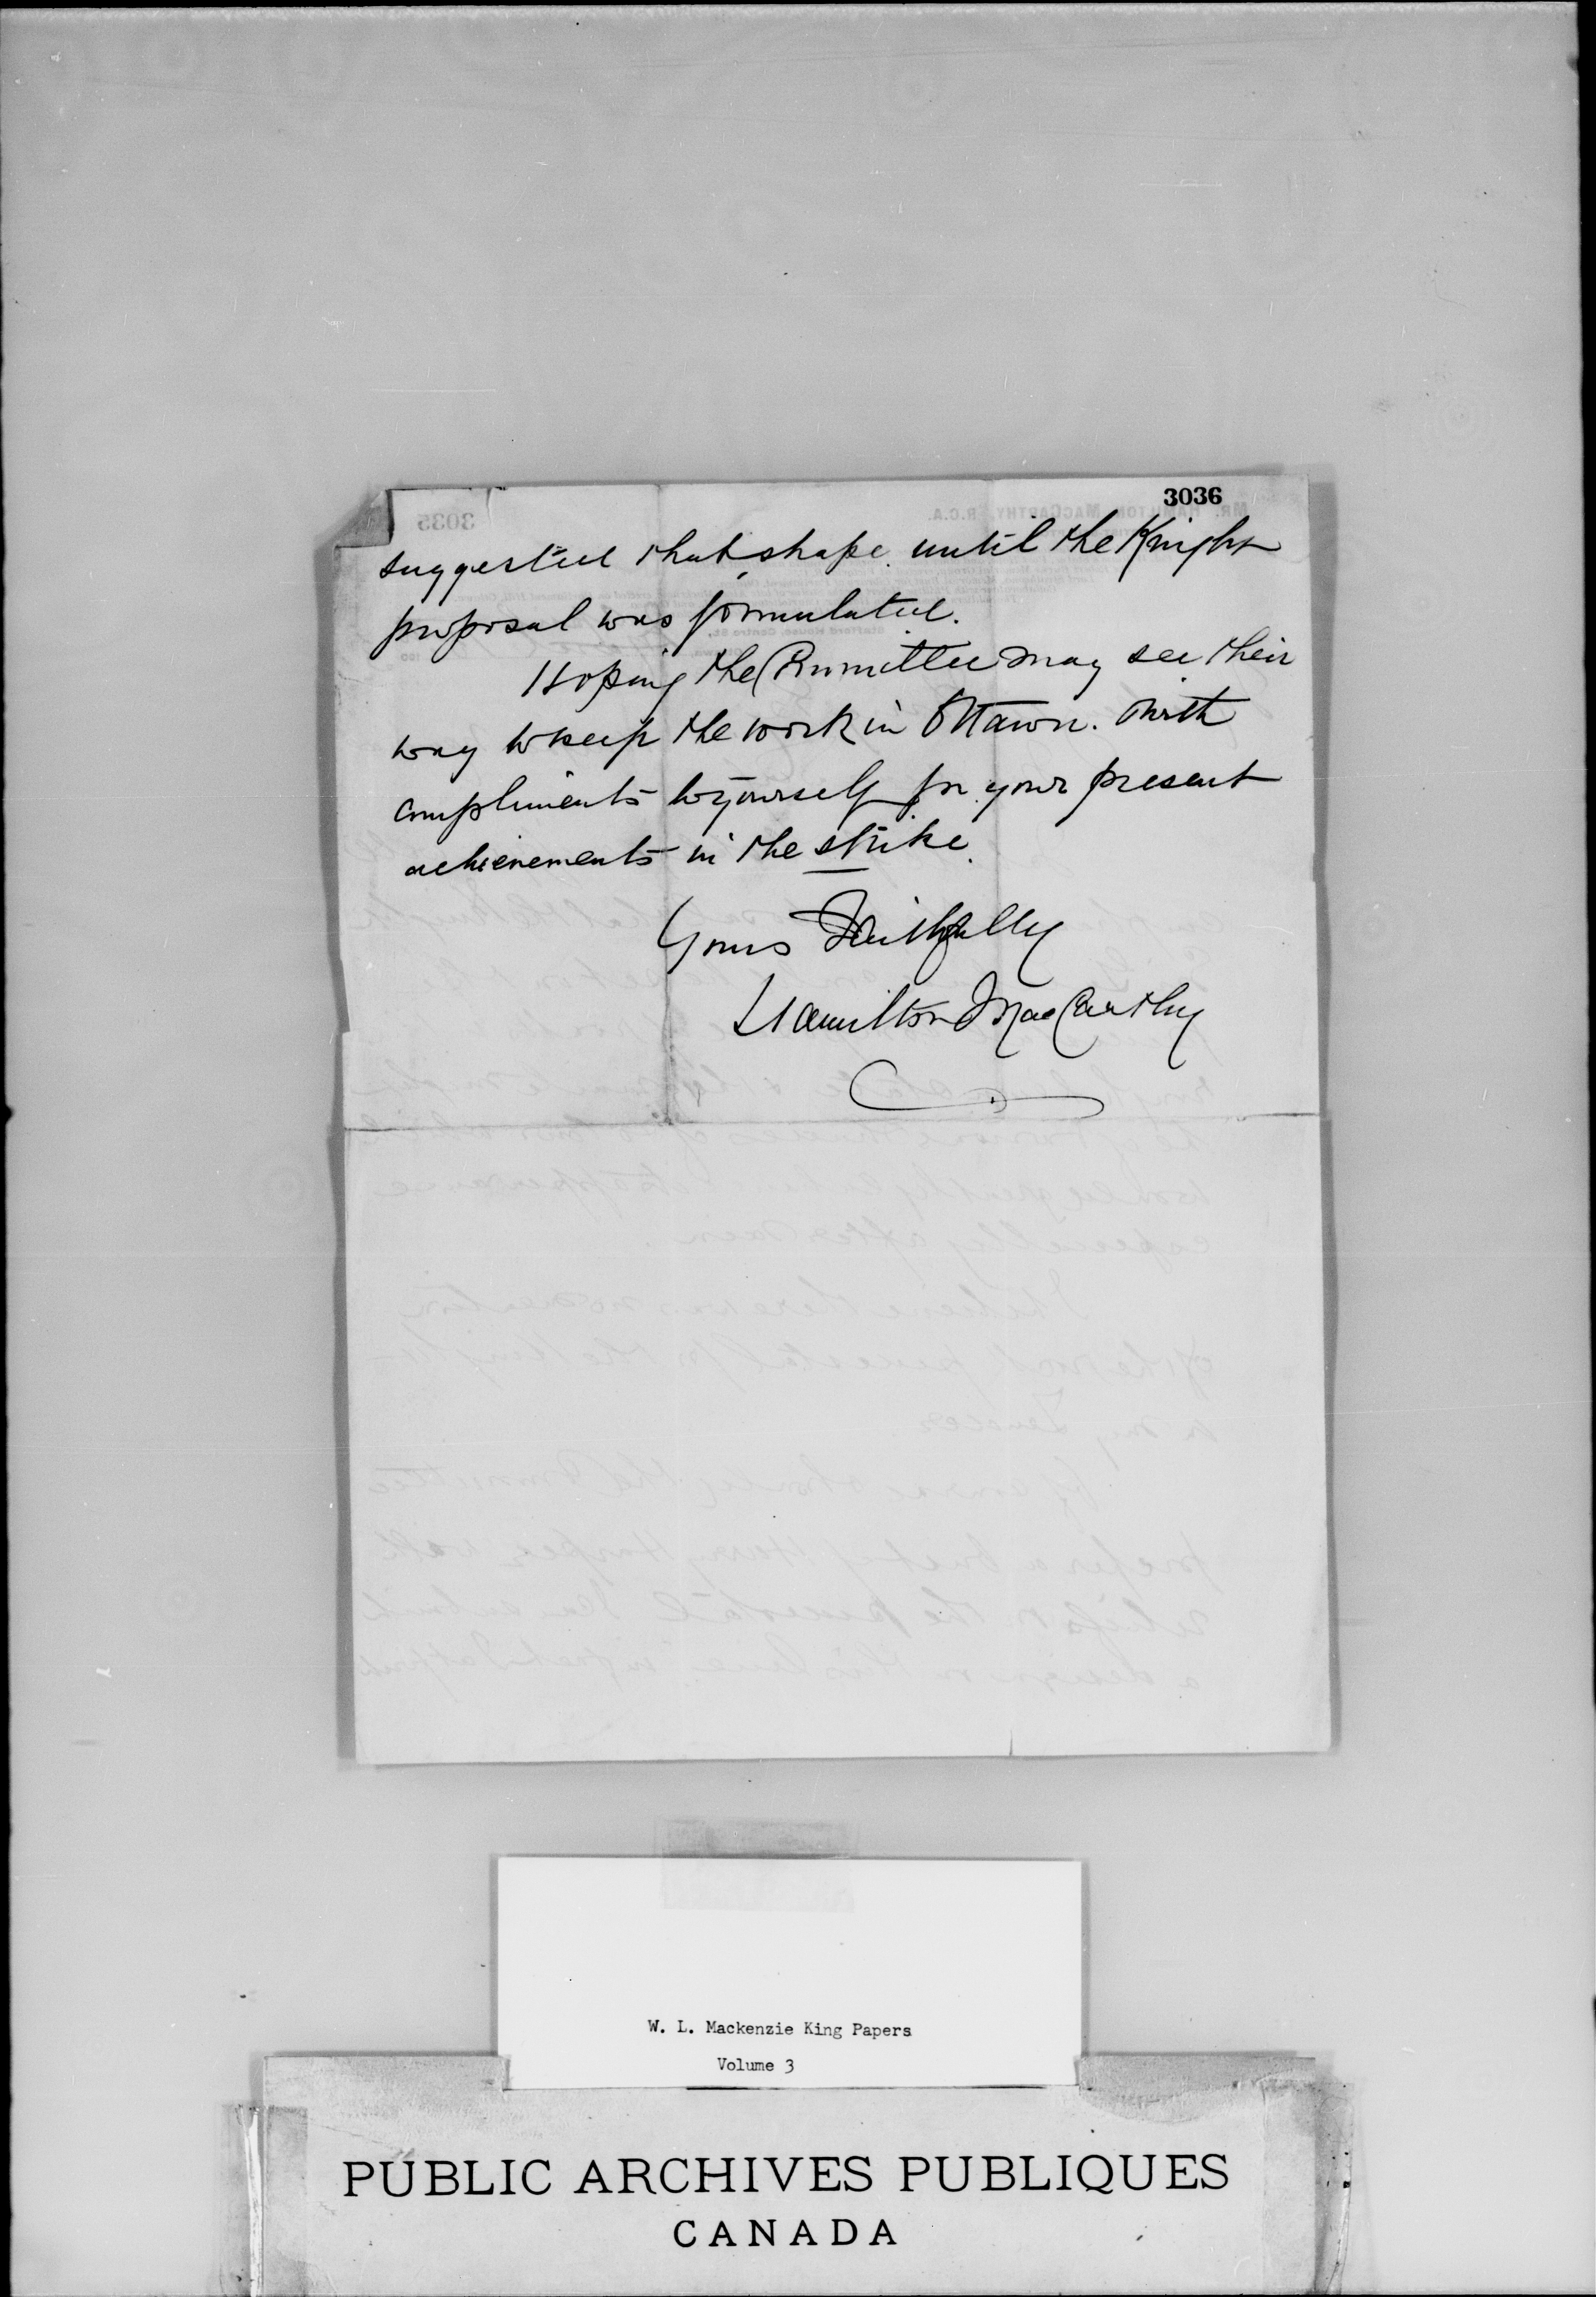 3036
suggested that shape. until the Knight
proposal was formulated.
Hoping the Committee may see their
way to keep the work in Ottawa. With
compliments to yourself for your present
achievements in the strike.
Yours Faithfully
Hamilton MacCarthy
W. L. Mackenzie King Papers
Volume 3
PUBLIC ARCHIVES PUBLIQUES
CANADA